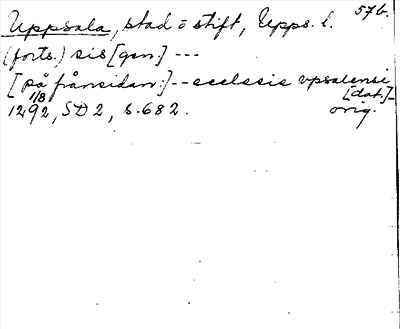 Uppsala, stad o stift, Upps. l. 576.
(forts.) sis [gen] ---
[på frånsidan:] -- ecclesie vpsalensi
1/8 [dat.] -
1292, SD 2, s. 682. orig.